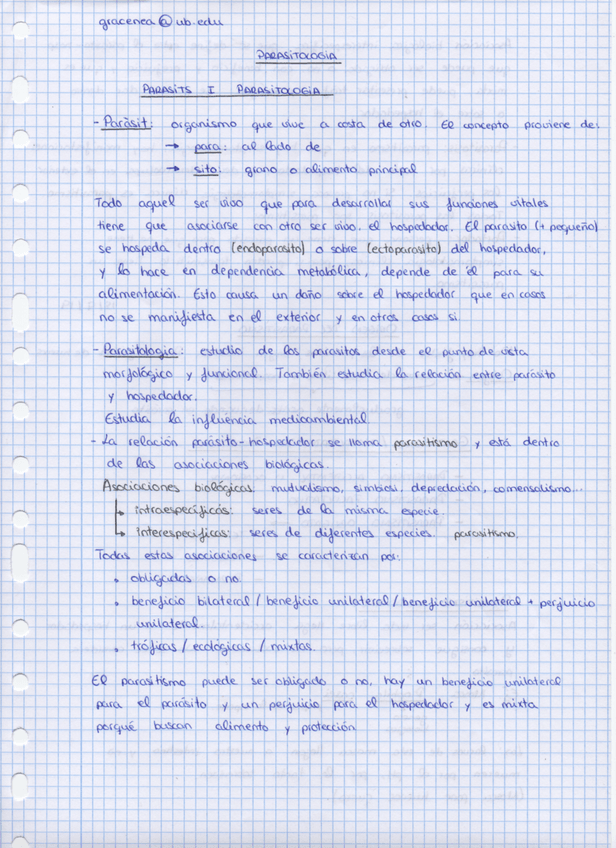 gracenea@ub.edu
PARASITOLOGIA
PARASITS I PARASITOLOGIA
- Paràsit: organismo que vive a costa de otro. El concepto proviene de:
→ para: al lado de
→ sito: grano o alimento principal
Todo aquel ser vivo que para desarrollar sus funciones vitales
tiene que asociarse con otro ser vivo, el hospedador. El parasito (+ pequeño)
se hospeda dentro (endoparasito) o sobre (ectoparasito) del hospedador,
y lo hace en dependencia metabólica, depende de él para su
alimentación. Esto causa un daño sobre el hospedador que en casos
no se manifiesta en el exterior y en otros casos si
- Parasitologia: estudio de los parasitos desde el punto de vista
morfológico y funcional. También estudia la relación entre parásito
y hospedador.
Estudia la influéncia medioambiental
- La relación parásito-hospedador se llama parasitismo y está dentro
de las asociaciones biológicas.
Asociaciones biológicas: mutualismo, simbiosi, depredación, comensalismo...
↳ intraespecíficas: seres de la misma especie
↳ interespecificas: seres de diferentes especies. parasitismo.
Todas estas asociaciones se caracterizan por:
• obligadas o no
• beneficio bilateral / beneficio unilateral / beneficio unilateral + perjuicio
unilateral.
• tróficas / ecológicas / mixtas.
El parasitismo puede ser obligado o no, hay un beneficio unilateral
para el parásito y un perjuicio para el hospedador y es mixta
porqué buscan alimento y protección